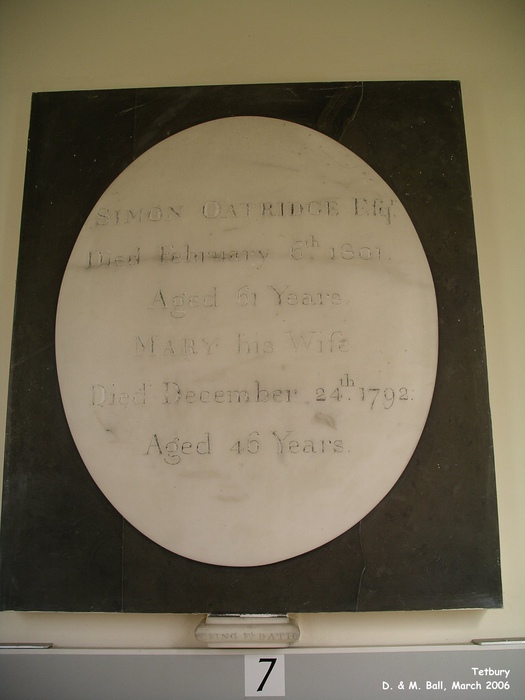 SIMON OATRIDGE Esqr.
Died February 6th. 1801.
Aged 61 Years.
MARY his Wife
Died December 24th. 1792.
Aged 46 Years.
KING Ft. BATH
7
Tetbury
D. & M. Ball, March 2006